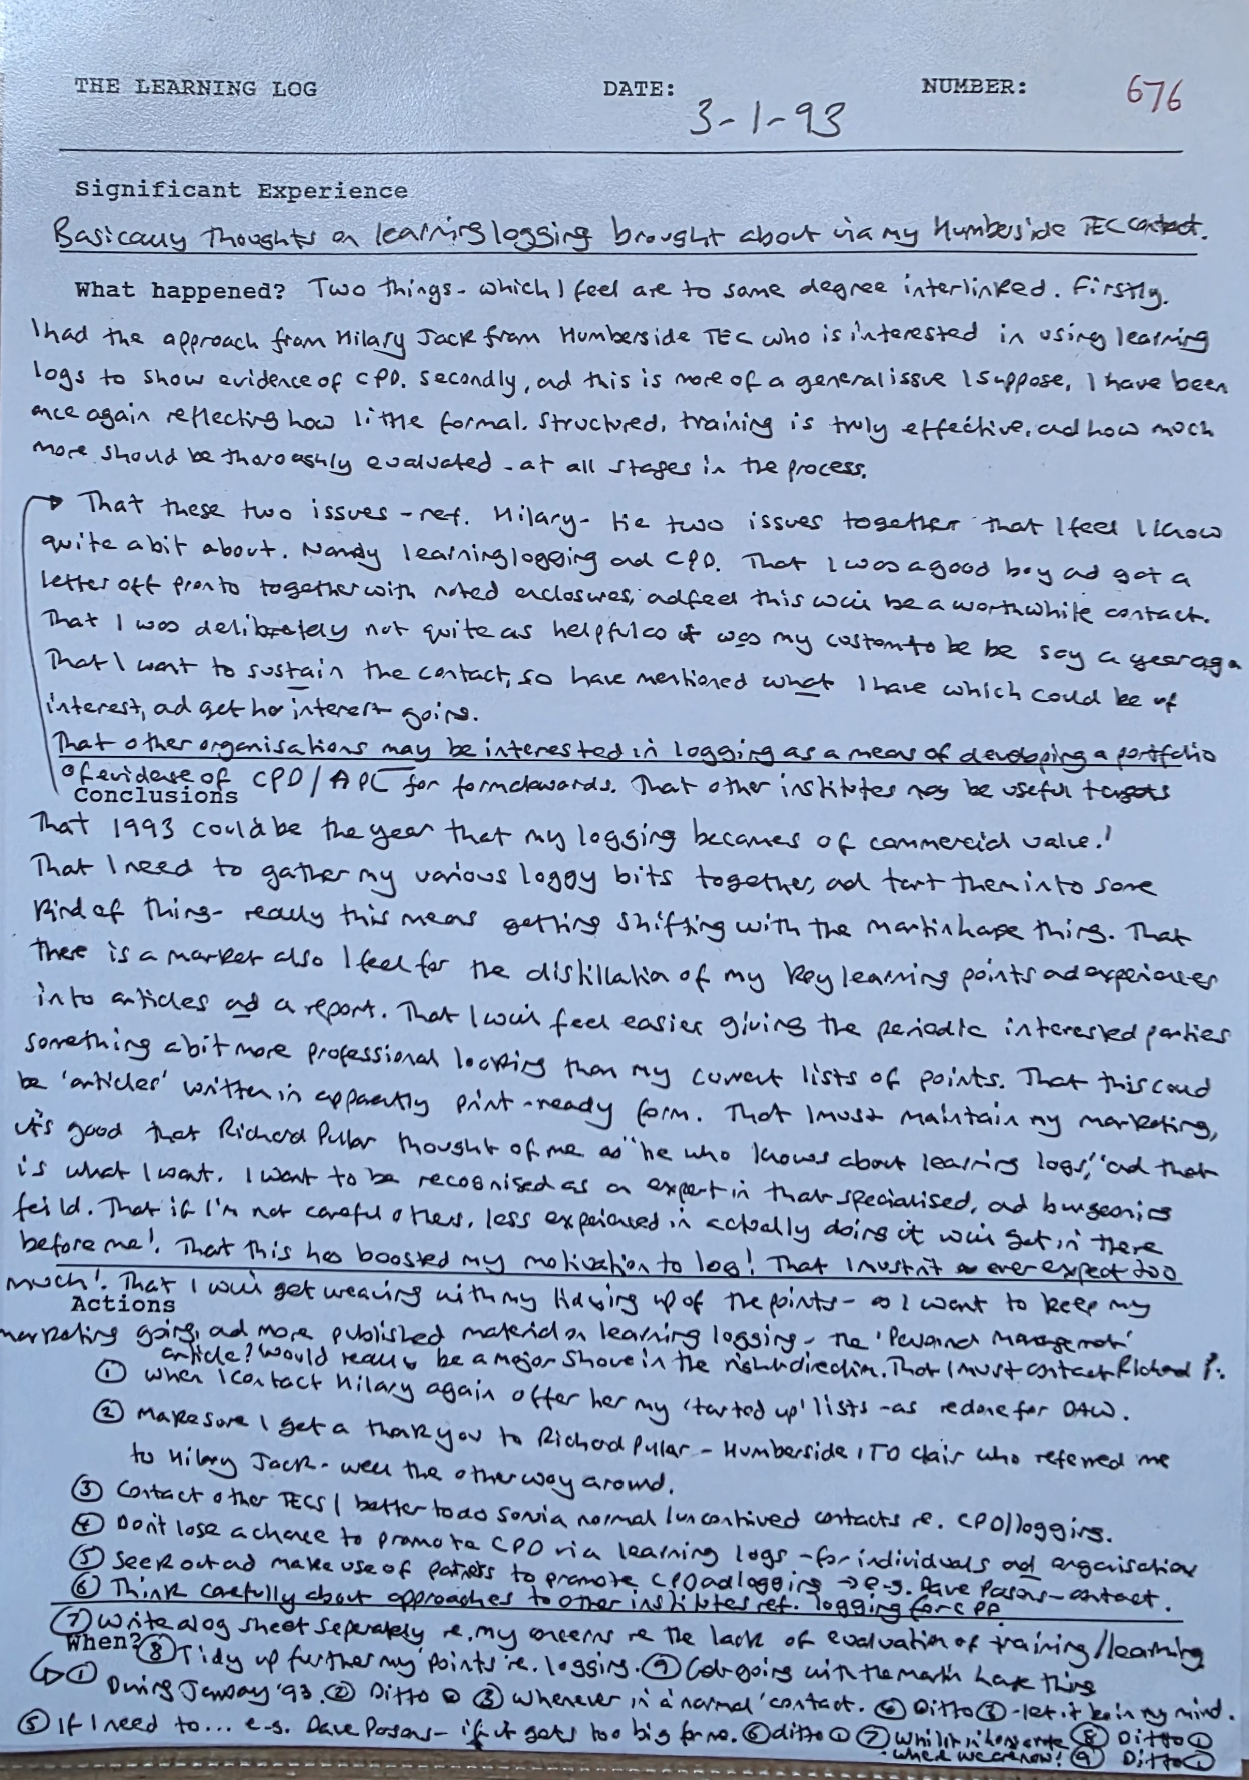 THE LEARNING LOG DATE: NUMBER: 676
3-1-93
Significant Experience
Basically thoughts on learning logging brought about via my Humberside TEC contact.
What happened? Two things - which I feel are to some degree interlinked. Firstly,
I had the approach from Hilary Jack from Humberside TEC who is interested in using learning
logs to show evidence of CPD. Secondly, and this is more of a general issue I suppose, I have been
once again reflecting how little formal, structured, training is truly effective, and how much
more should be thoroughly evaluated - at all stages in the process.
That these two issues - ref. Hilary - tie two issues together that I feel I know
quite a bit about. Namely learning logging and CPD. That I was a good boy and got a
letter off pronto together with noted enclosures, and feel this will be a worthwhile contact.
That I was deliberately not quite as helpful as it was my custom to be be say a year ago
That I want to sustain the contact, so have mentioned what I have which could be of
interest, and get her interest going.
That other organisations may be interested in logging as a means of developing a portfolio
of evidence of CPD/APL for forwards. That other institutes may be useful targets
Conclusions
That 1993 could be the year that my logging becomes of commercial value!
That I need to gather my various loggy bits together, and tart them into some
kind of thing - really this means getting shifting with the Martin hope thing. That
there is a market also I feel for the distillation of my key learning points and experiences
into articles and a report. That I will feel easier giving the periodic interested parties
something a bit more professional looking than my current lists of points. That this could
be 'articles' written in apparently print-ready form. That I must maintain my marketing,
it's good that Richard Pullar thought of me as "he who knows about learning logs," and that
is what I want. I want to be recognised as an expert in that specialised, and burgeoning
feild. That if I'm not careful others, less experienced in actually doing it will get in there
before me!. That this has boosted my motivation to log! That I mustn't ever expect too
much!. That I will get weaving with my tidying up of the points - as I want to keep my
Actions
marketing going, and more published material on learning logging - the 'Personnel Management'
article? Would really be a major shove in the right direction. That I must contact Richard P.
① When I contact Hilary again offer her my 'tarted up' lists - as redone for OAW.
② Make sure I get a thank you to Richard Pullar - Humberside ITD chair who referred me
to Hilary Jack - well the other way around.
③ Contact other TECS / better to do so via normal/uncontrived contacts re. CPD/logging.
④ Don't lose a chance to promote CPD via learning logs - for individuals and organisation
⑤ Seek out and make use of partners to promote CPD and logging → e.g. Dave Parsons - contact.
⑥ Think carefully about approaches to other institutes ref. logging for CPD
⑦ Write a log sheet seperately re. my concerns re the lack of evaluation of training/learning
When? ⑧ Tidy up further my 'points' re. logging. ⑨ Get going with the Martin thing
① During January '93. ② Ditto ① ③ Whenever in a 'normal' contact. ④ Ditto ③ - let it be in my mind.
⑤ If I need to... e.g. Dave Parsons - if it gets too big for me. ⑥ ditto ① ⑦ Whilst in ⑧ Ditto ①
where we are now! ⑨ Ditto ①